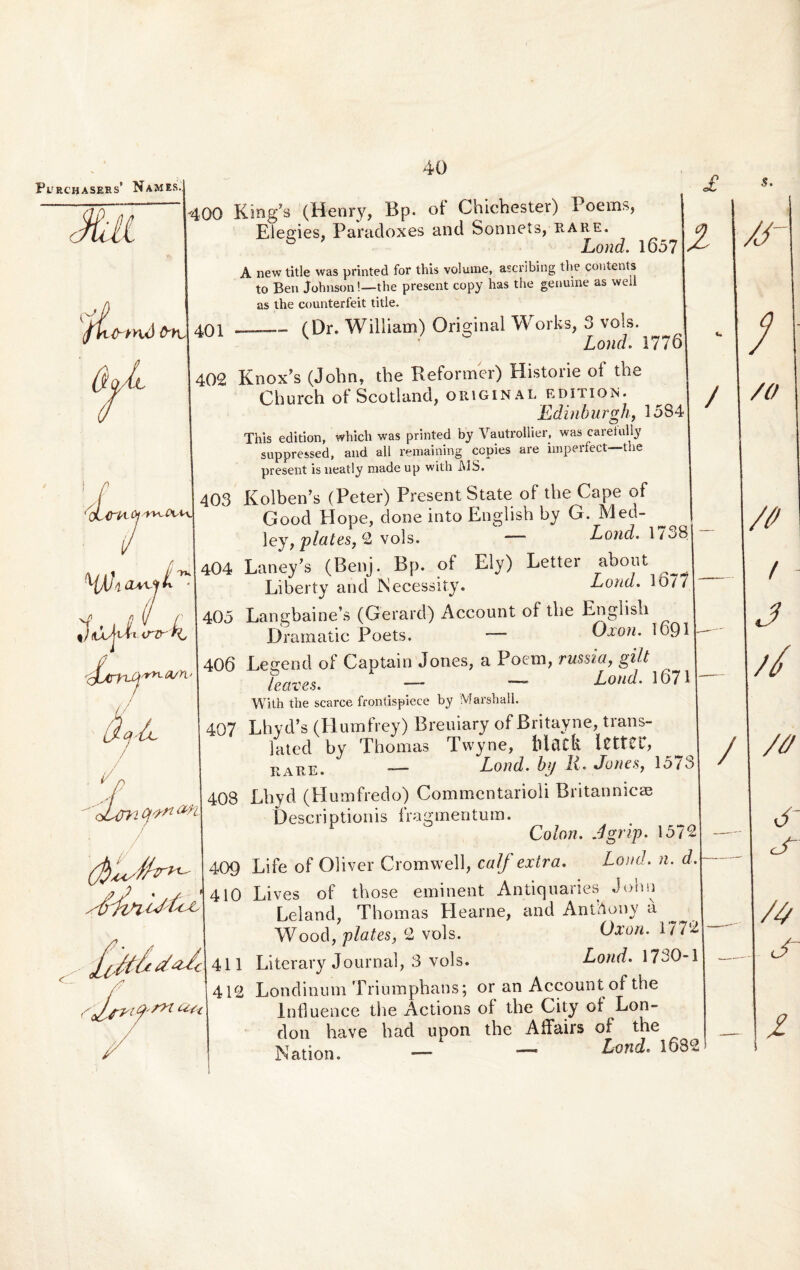 40
Purchasers' Names.
£ s.
Hill 400 King's (Henry, Bp. of Chichester) Poems,
Elegies, Paradoxes and Sonnets, RARE.
Lond. 1657 2 15
A new title was printed for this volume, ascribing the contents
to Ben Johnson!—the present copy has the genuine as well
as the counterfeit title.
401 ——— (Dr. William) Original Works, 3 vols.
Lond. 1776 9
402 Knox's (John, the Reformer) Historie of the
Church of Scotland, ORIGINAL EDITION.
Edinburgh, 1584 1 10
This edition, which was printed by Vautrollier, was carefully
suppressed, and all remaining copies are imperfect—the
present is neatly made up with MS.
Longman 403 Kolben's (Peter) Present State of the Cape of
Good Hope, done into English by G. Med-
ley, plates, 2 vols. — Lond. 1738 — 10
404 Laney's (Benj. Bp. of Ely) Letter about
Liberty and Necessity. Lond. 1677 — 1 -
405 Langbaine's (Gerard) Account of the English
Dramatic Poets. — Oxon. 1691 — 3
Longman 406 Legend of Captain Jones, a Poem, russia, gilt
leaves. — — Lond. 1671 — 16
With the scarce frontispiece by Marshall.
407 Lhyd's (Humfrey) Breuiary of Britayne, trans-
lated by Thomas Twyne, black letter,
RARE. — Lond. by R. Jones, 1573 1 10
Longman 408 Lhyd (Humfredo) Commentarioli Britannicæ
Descriptionis fragmentum.
Colon. Agrip. 1572 — 5
409 Life of Oliver Cromwell, calf extra. Lond. n. d. — 5
410 Lives of those eminent Antiquaries John
Leland, Thomas Hearne, and Anthony à
Wood, plates, 2 vols. Oxon. 1772 — 14
411 Literary Journal, 3 vols. Lond. 1730-1 — 5
Longman 412 Londinum Triumphans; or an Account of the
Influence the Actions of the City of Lon-
don have had upon the Affairs of the
Nation. — — Lond. 1682 — 2